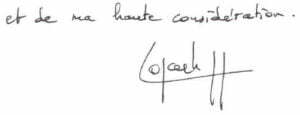 et de ma haute considération.